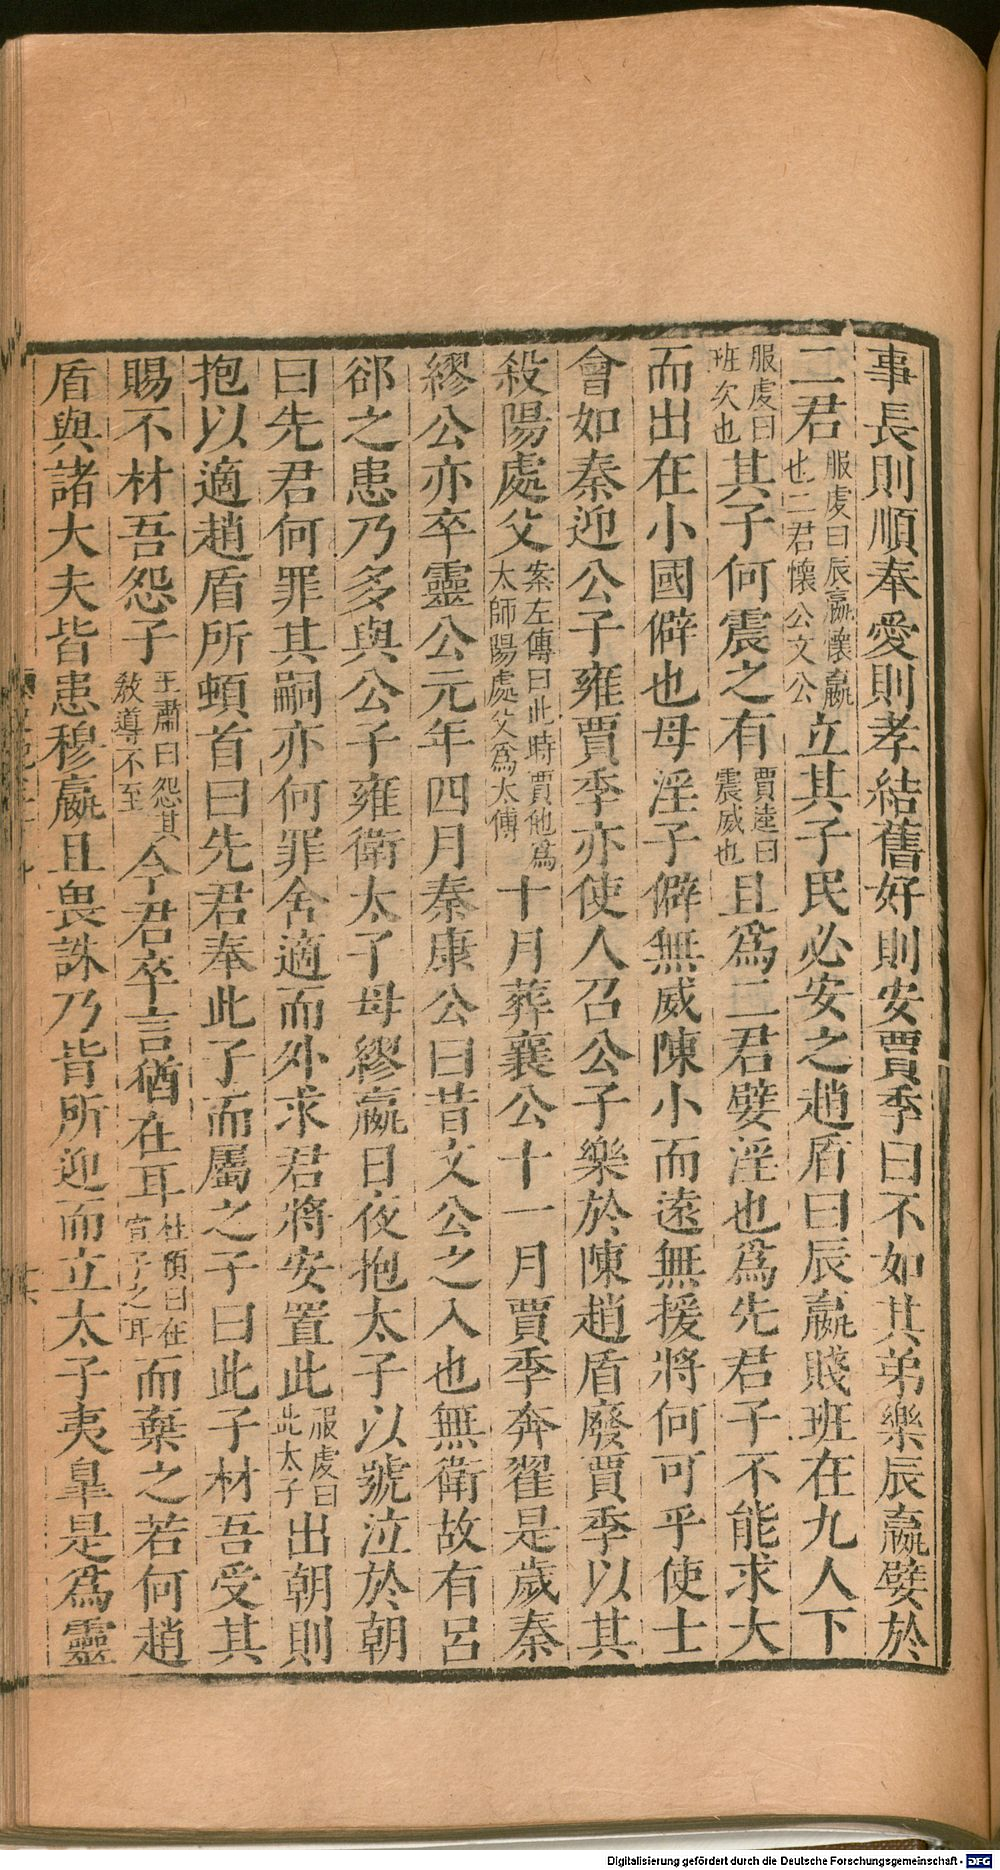 事長則順奉愛則孝結舊好則安賈季曰不如其弟樂辰嬴嬖於
二君服虔曰辰嬴懷嬴也二君懷公文公立其子民必安之趙盾曰辰嬴賤班在九人下
服虔曰班次也其子何震之有賈逵曰震威也且爲二君嬖淫也爲先君子不能求大
而出在小國僻也母淫子僻無威陳小而遠無援將何可乎使士
會如秦迎公子雍賈季亦使人召公子樂於陳趙盾廢賈季以其
殺陽處父案左傳曰此時賈他爲太師陽處父爲太傅十月葬襄公十一月賈季奔翟是歲秦
繆公亦卒靈公元年四月秦康公曰昔文公之入也無衛故有呂
郤之患乃多與公子雍衛太子母繆嬴日夜抱太子以號泣於朝
曰先君何罪其嗣亦何罪舍適而外求君將安置此服虔曰此太子出朝則
抱以適趙盾所頓首曰先君奉此子而屬之子曰此子材吾受其
賜不材吾怨子王肅曰怨其教導不至今君卒言猶在耳杜預曰在宣子之耳而棄之若何趙
盾與諸大夫皆患穆嬴且畏誅乃皆所迎而立太子夷皐是爲靈
Digitalisierung gefördert durch die Deutsche Forschungsgemeinschaft - DFG